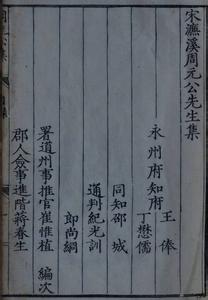 宋濂溪周元公先生集
王俸
永州府知府
丁懋儒
同知邵城
通判紀光訓
郎尚絅
署道州事推官崔惟植 編次
郡人僉事進階蔣春生